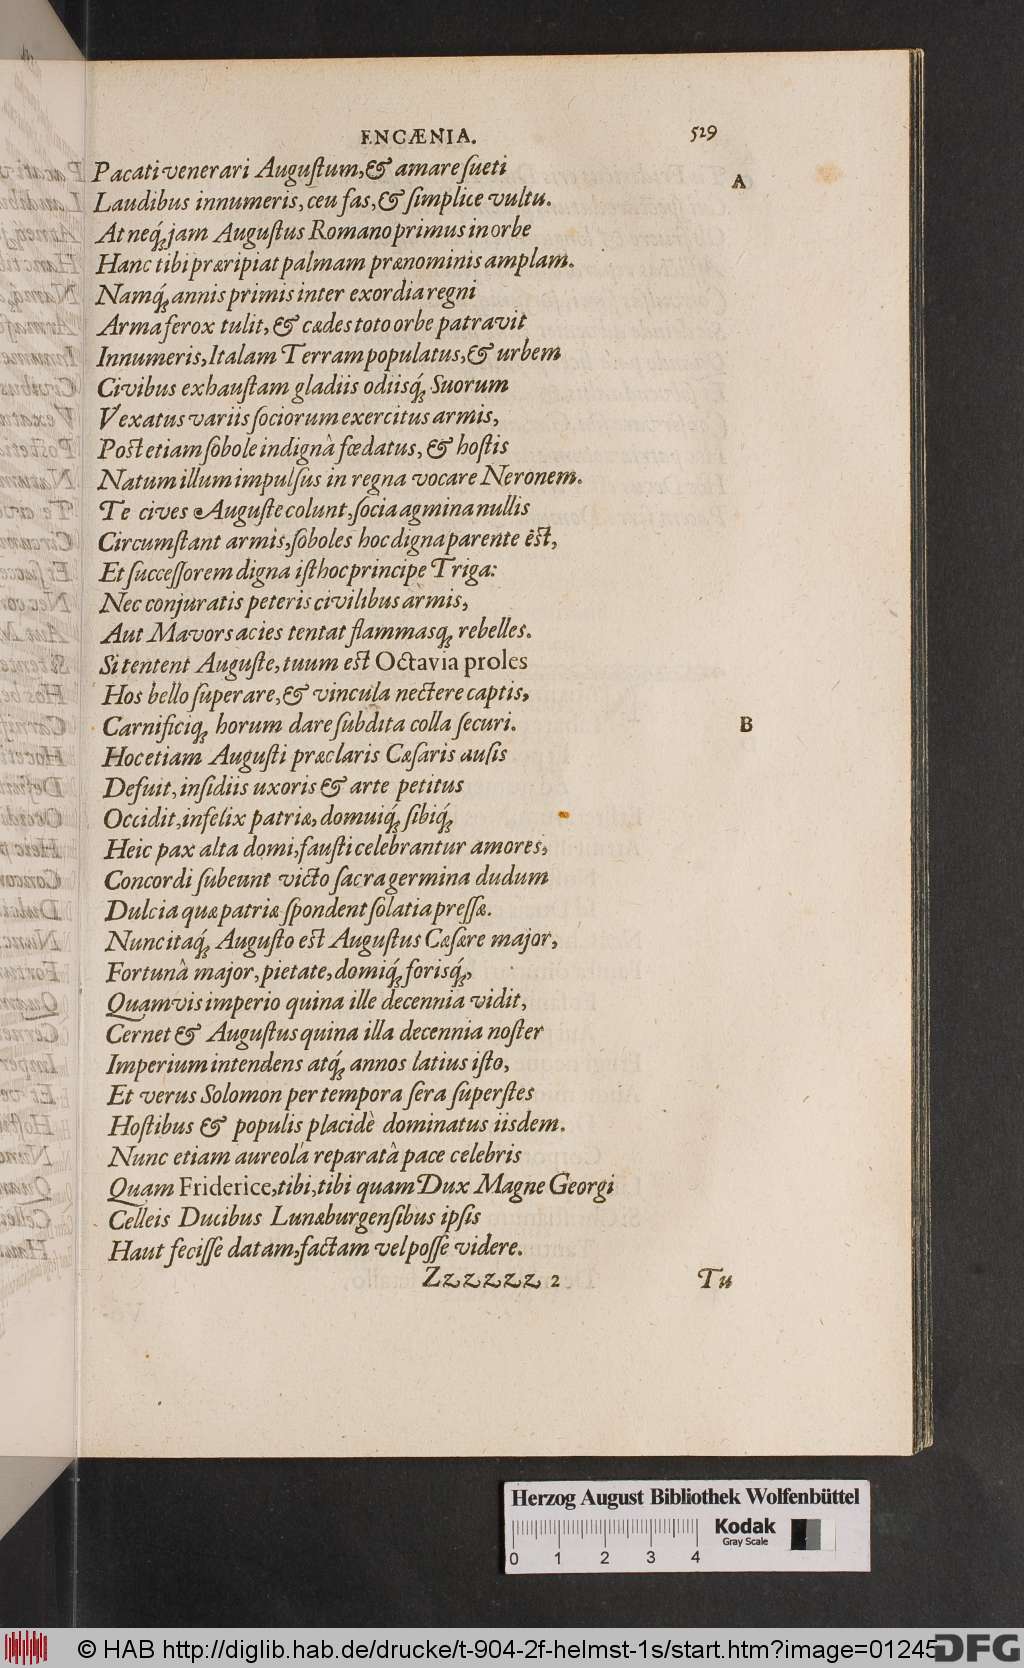 ENCÆNIA. 529
Pacati venerari Auguſtum, & amare ſueti
A
Laudibus innumeris, ceu fas, & ſimplice vultu.
At neq́; jam Auguſtus Romano primus in orbe
Hanc tibi præripiat palmam prænominis amplam.
Namq́; annis primis inter exordia regni
Arma ferox tulit, & cædes toto orbe patravit
Innumeris, Italam Terram populatus, & urbem
Civibus exhauſtam gladiis odiisq́; Suorum
Vexatus variis ſociorum exercitus armis,
Poſt etiam ſobole indignà fœdatus, & hoſtis
Natum illum impulſus in regna vocare Neronem.
Te cives Auguſte colunt, ſocia agmina nullis
Circumſtant armis, ſoboles hoc digna parente eſt,
Et ſucceſſorem digna iſthoc principe Triga:
Nec conjuratis peteris civilibus armis,
Aut Mavors acies tentat flammasq; rebelles.
Si tentent Auguſte, tuum eſt Octavia proles
Hos bello ſuperare, & vincula nectere captis,
Carnificiq; horum dare ſubdita colla ſecuri.
B
Hoc etiam Auguſti præclaris Cæſaris auſis
Defuit, inſidiis uxoris & arte petitus
Occidit, infelix patriæ, domuiq́; ſibiq́;
Heic pax alta domi, fauſti celebrantur amores,
Concordi ſubeunt victo ſacra germina dudum
Dulcia quæ patriæ ſpondent ſolatia preſſæ.
Nunc itaq́; Auguſto eſt Auguſtus Cæſare major,
Fortunâ major, pietate, domiq́; forisq́;,
Quamvis imperio quina ille decennia vidit,
Cernet & Auguſtus quina illa decennia noſter
Imperium intendens atq́; annos latius iſto,
Et verus Solomon per tempora ſera ſuperſtes
Hoſtibus & populis placidè dominatus iisdem.
Nunc etiam aureolâ reparatâ pace celebris
Quam Friderice, tibi, tibi quam Dux Magne Georgi
Celleis Ducibus Lunæburgenſibus ipſis
Haut feciſſe datam, factam vel poſſe videre.
Zzzzzz 2 Tu
Herzog August Bibliothek Wolfenbüttel
0 1 2 3 4
Kodak
Gray Scale
© HAB http://diglib.hab.de/drucke/t-904-2f-helmst-1s/start.htm?image=01245
DFG